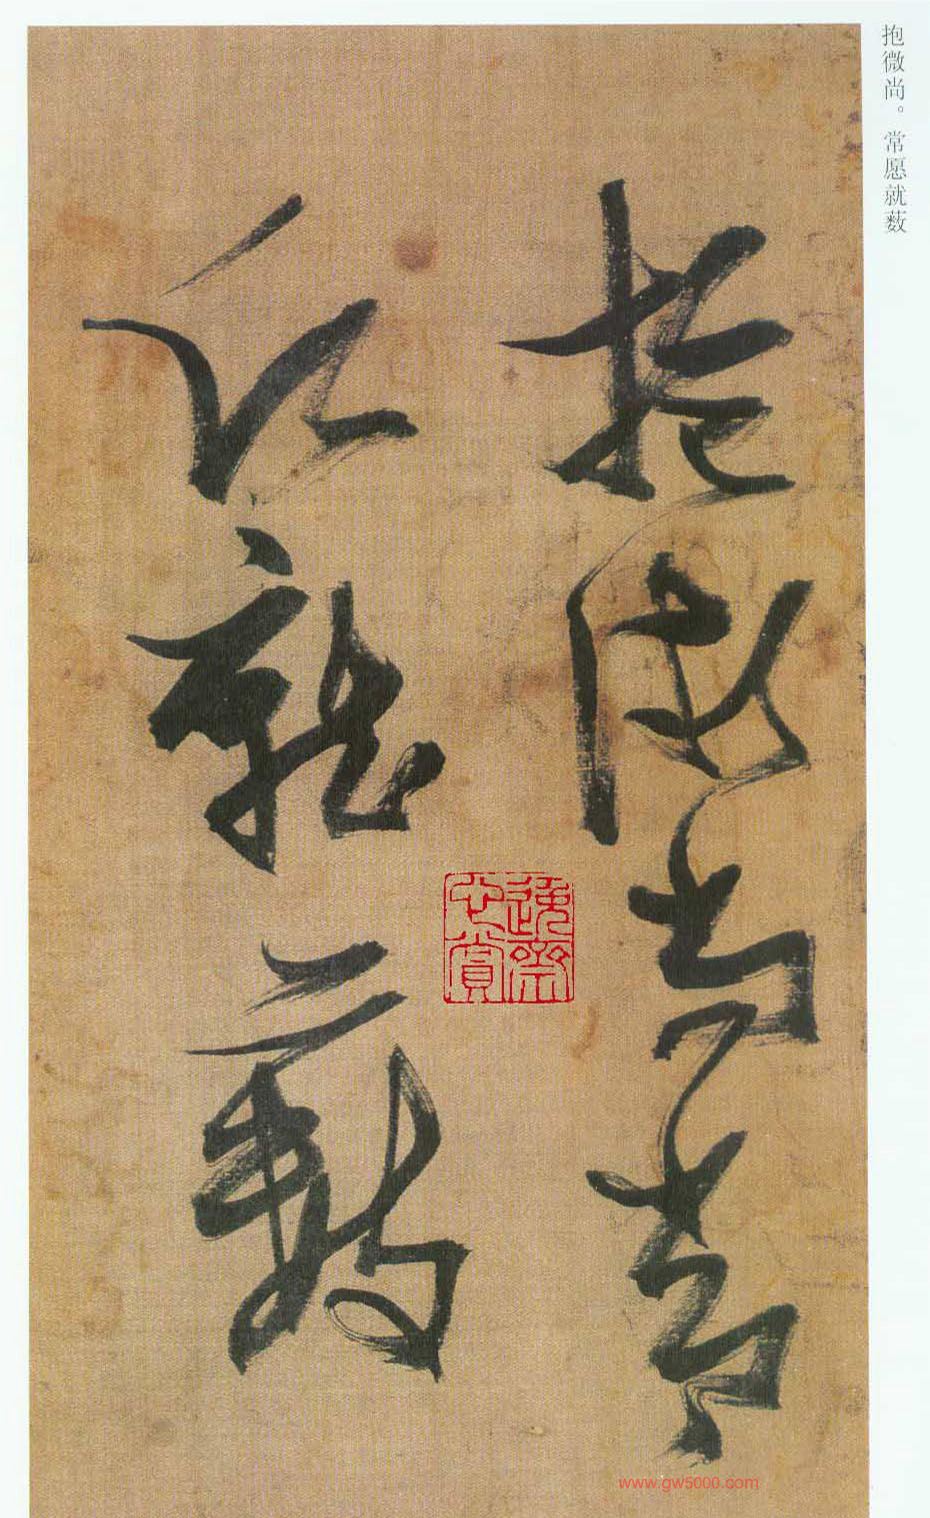 抱微尚。常愿就薮
抱微尚常
願就藪
www.gw5000.com